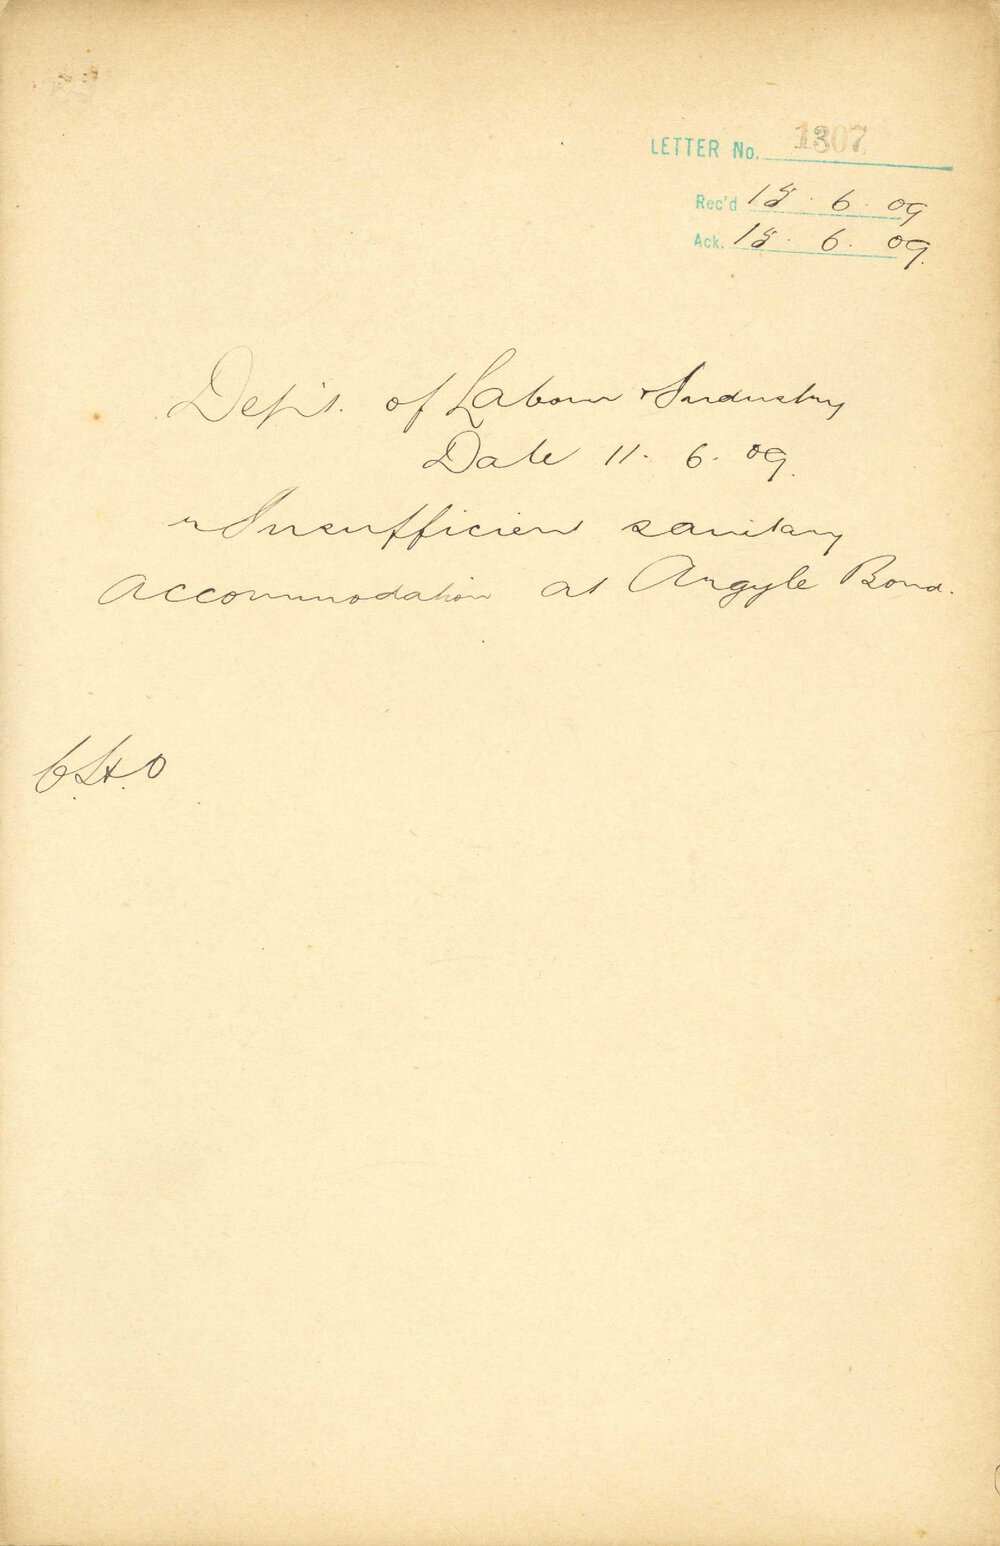 LETTER No. 1307
Rec'd 15. 6. 09
Ack. 15. 6. 09.
Dept. of Labour & Industry
Date 11. 6. 09.
r Insufficient sanitary
accommodation at Argyle Bond.
C.H.O